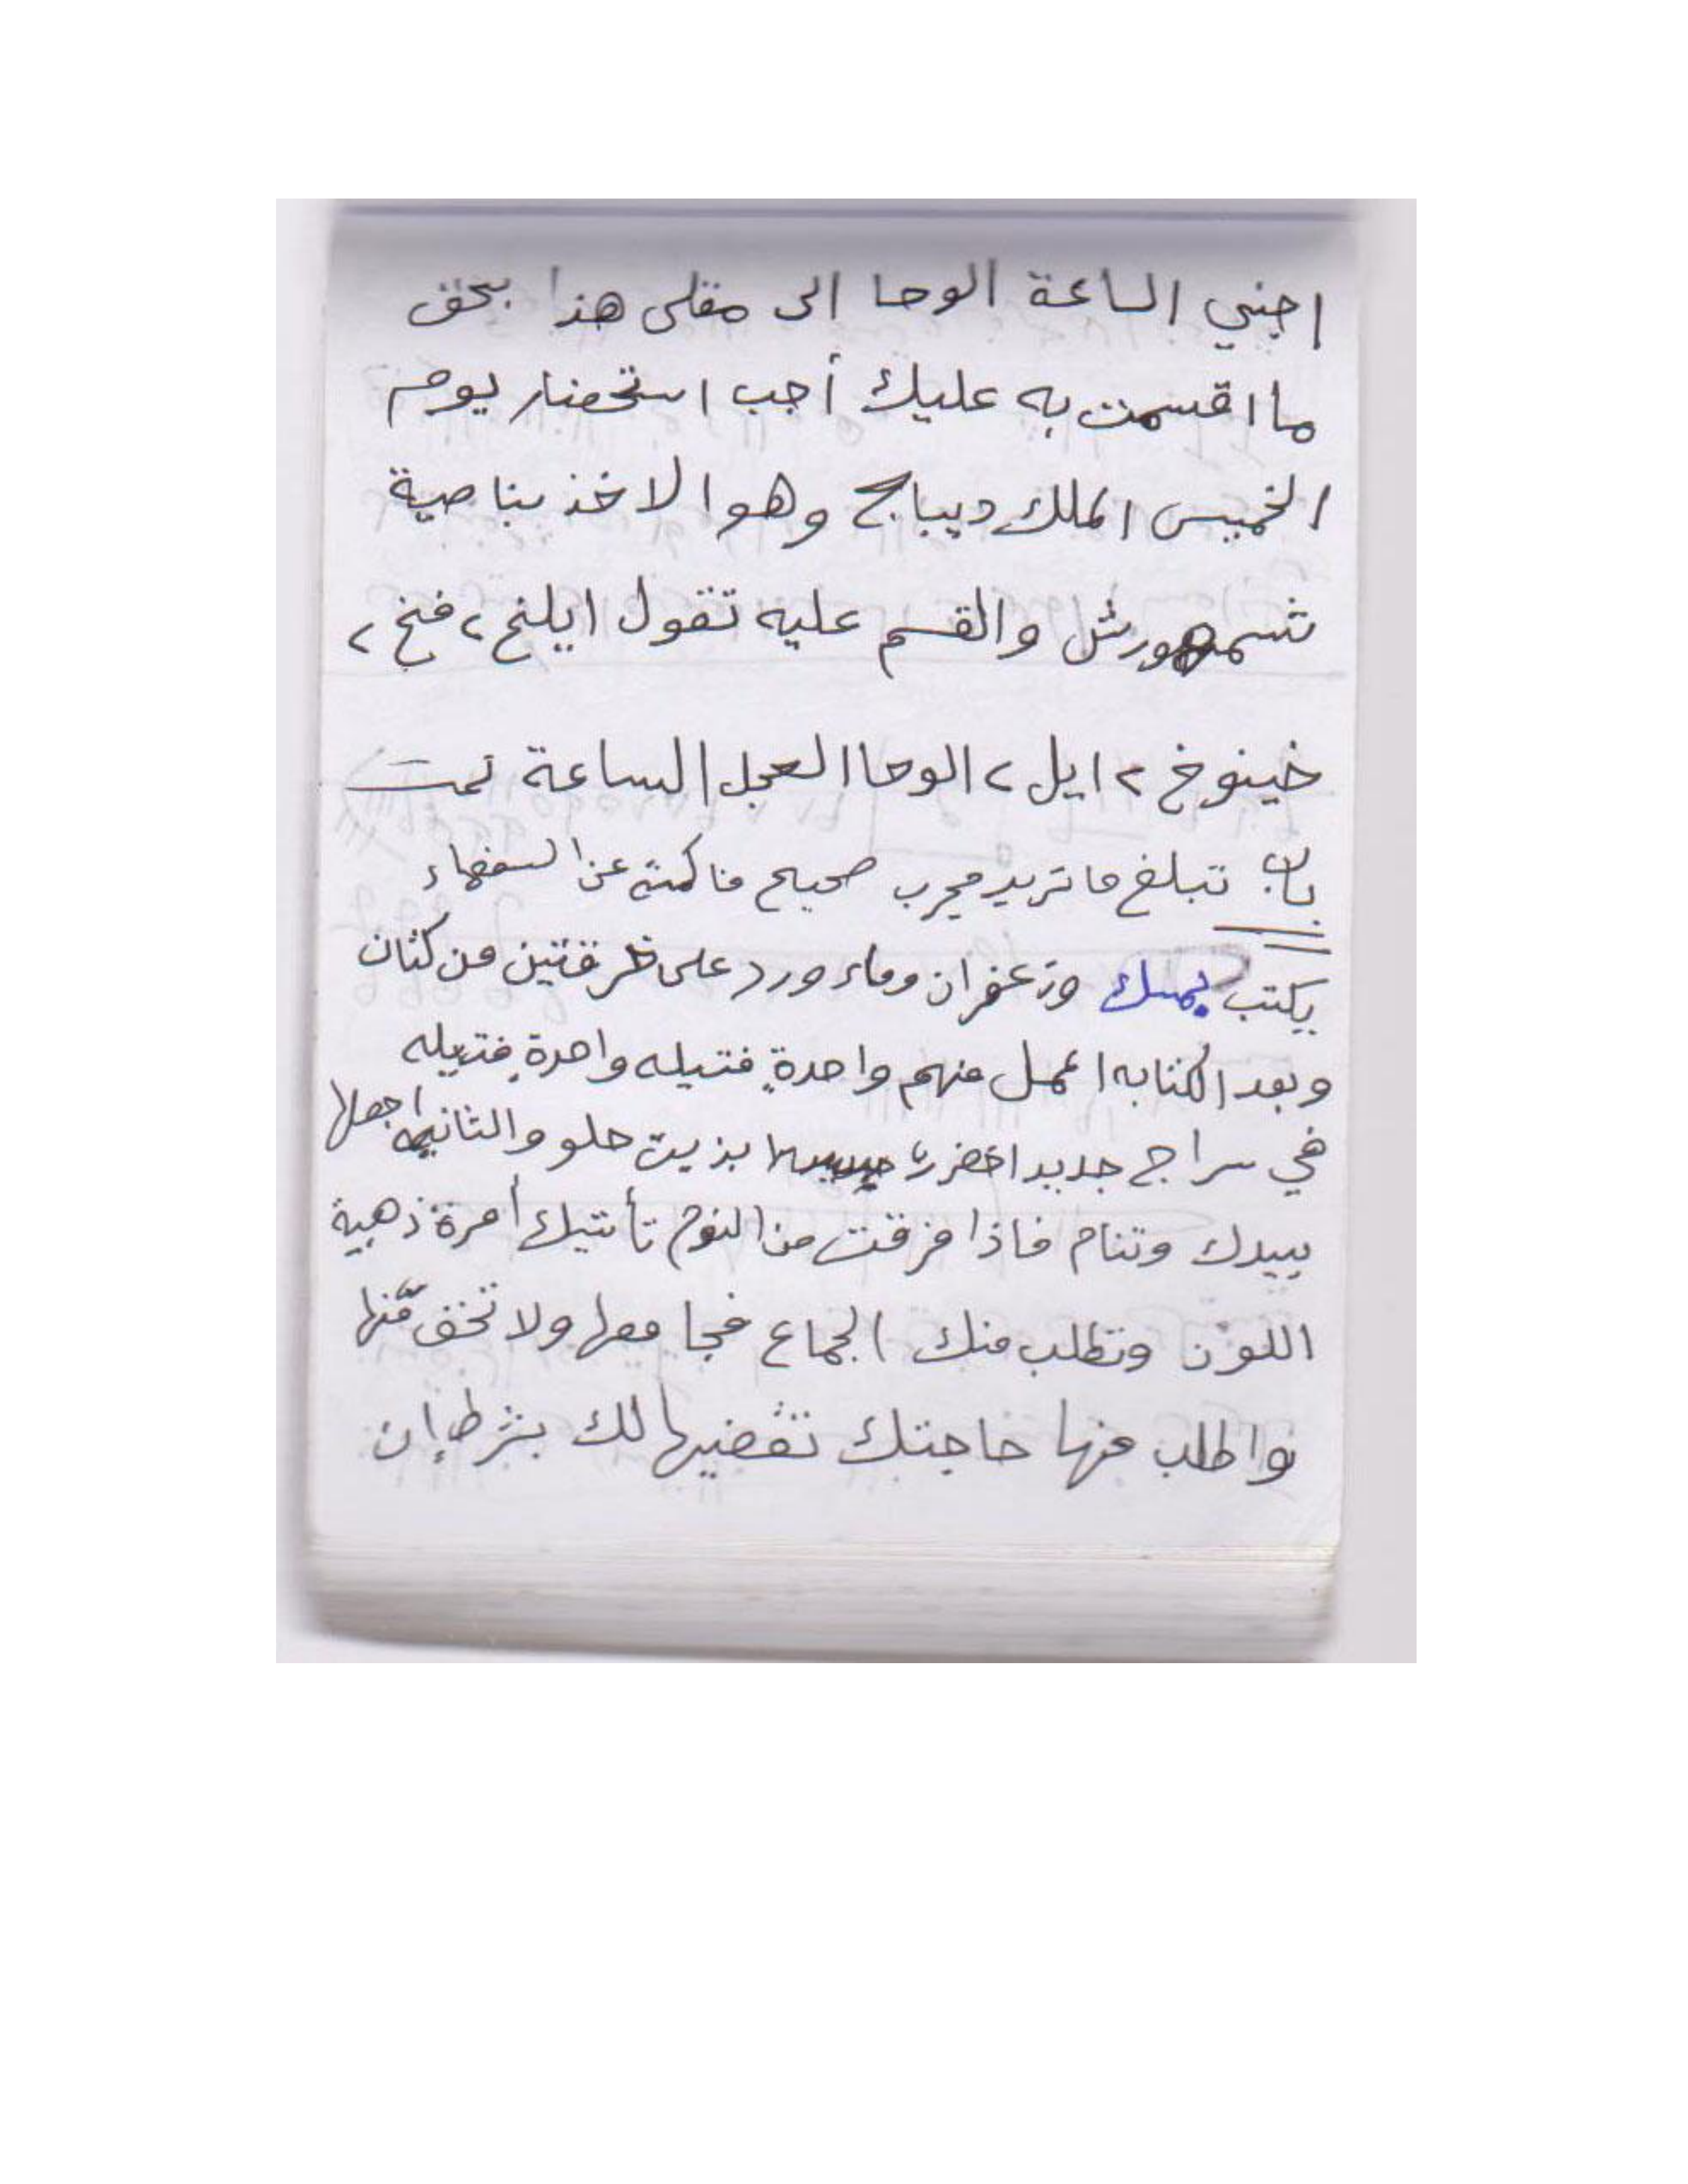 اجبني الساعة الوحا الى مقلى هذا بحق
ما اقسمت به عليك أجب استحضار يوم
الخميس الملك ديباج وهوا لاخذ بناصية
شمهورش والقسم عليه تقول ايلنح ٢ فنخ ٢
خينوخ ٢ ايل ٢ الوحا العجل الساعة تمت
باب تبلغ ما تريد مجرب صحيح فاكمته عن السفهاء
يكتب بمسك وزعفران وماء ورد على خرقتين من كتان
وبعد الكتابه اعمل منهم واحدة فتيله واحدة فتيله
في سراج جديد اخضر بزيت حلو والثانيه اجعلها
بيدك وتنام فاذا فرقت من النوم تأتيك أمرة ذهبية
اللون وتطلب منك الجماع فجامعها ولا تخف منها
واطلب منها حاجتك تقضيها لك بشرط إن